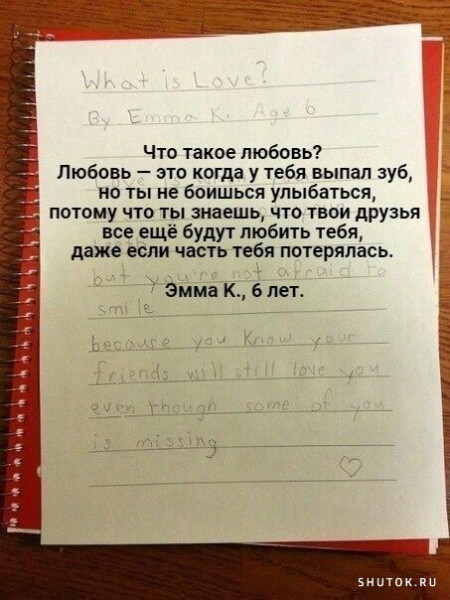 What is Love?
By Emma K. Age 6
Что такое любовь?
Любовь — это когда у тебя выпал зуб,
но ты не боишься улыбаться,
потому что ты знаешь, что твои друзья
все ещё будут любить тебя,
даже если часть тебя потерялась.
Эмма К., 6 лет.
but you're not afraid to
smile
because you know your
friends will still love you
even though some of you
is missing
SHUTOK.RU